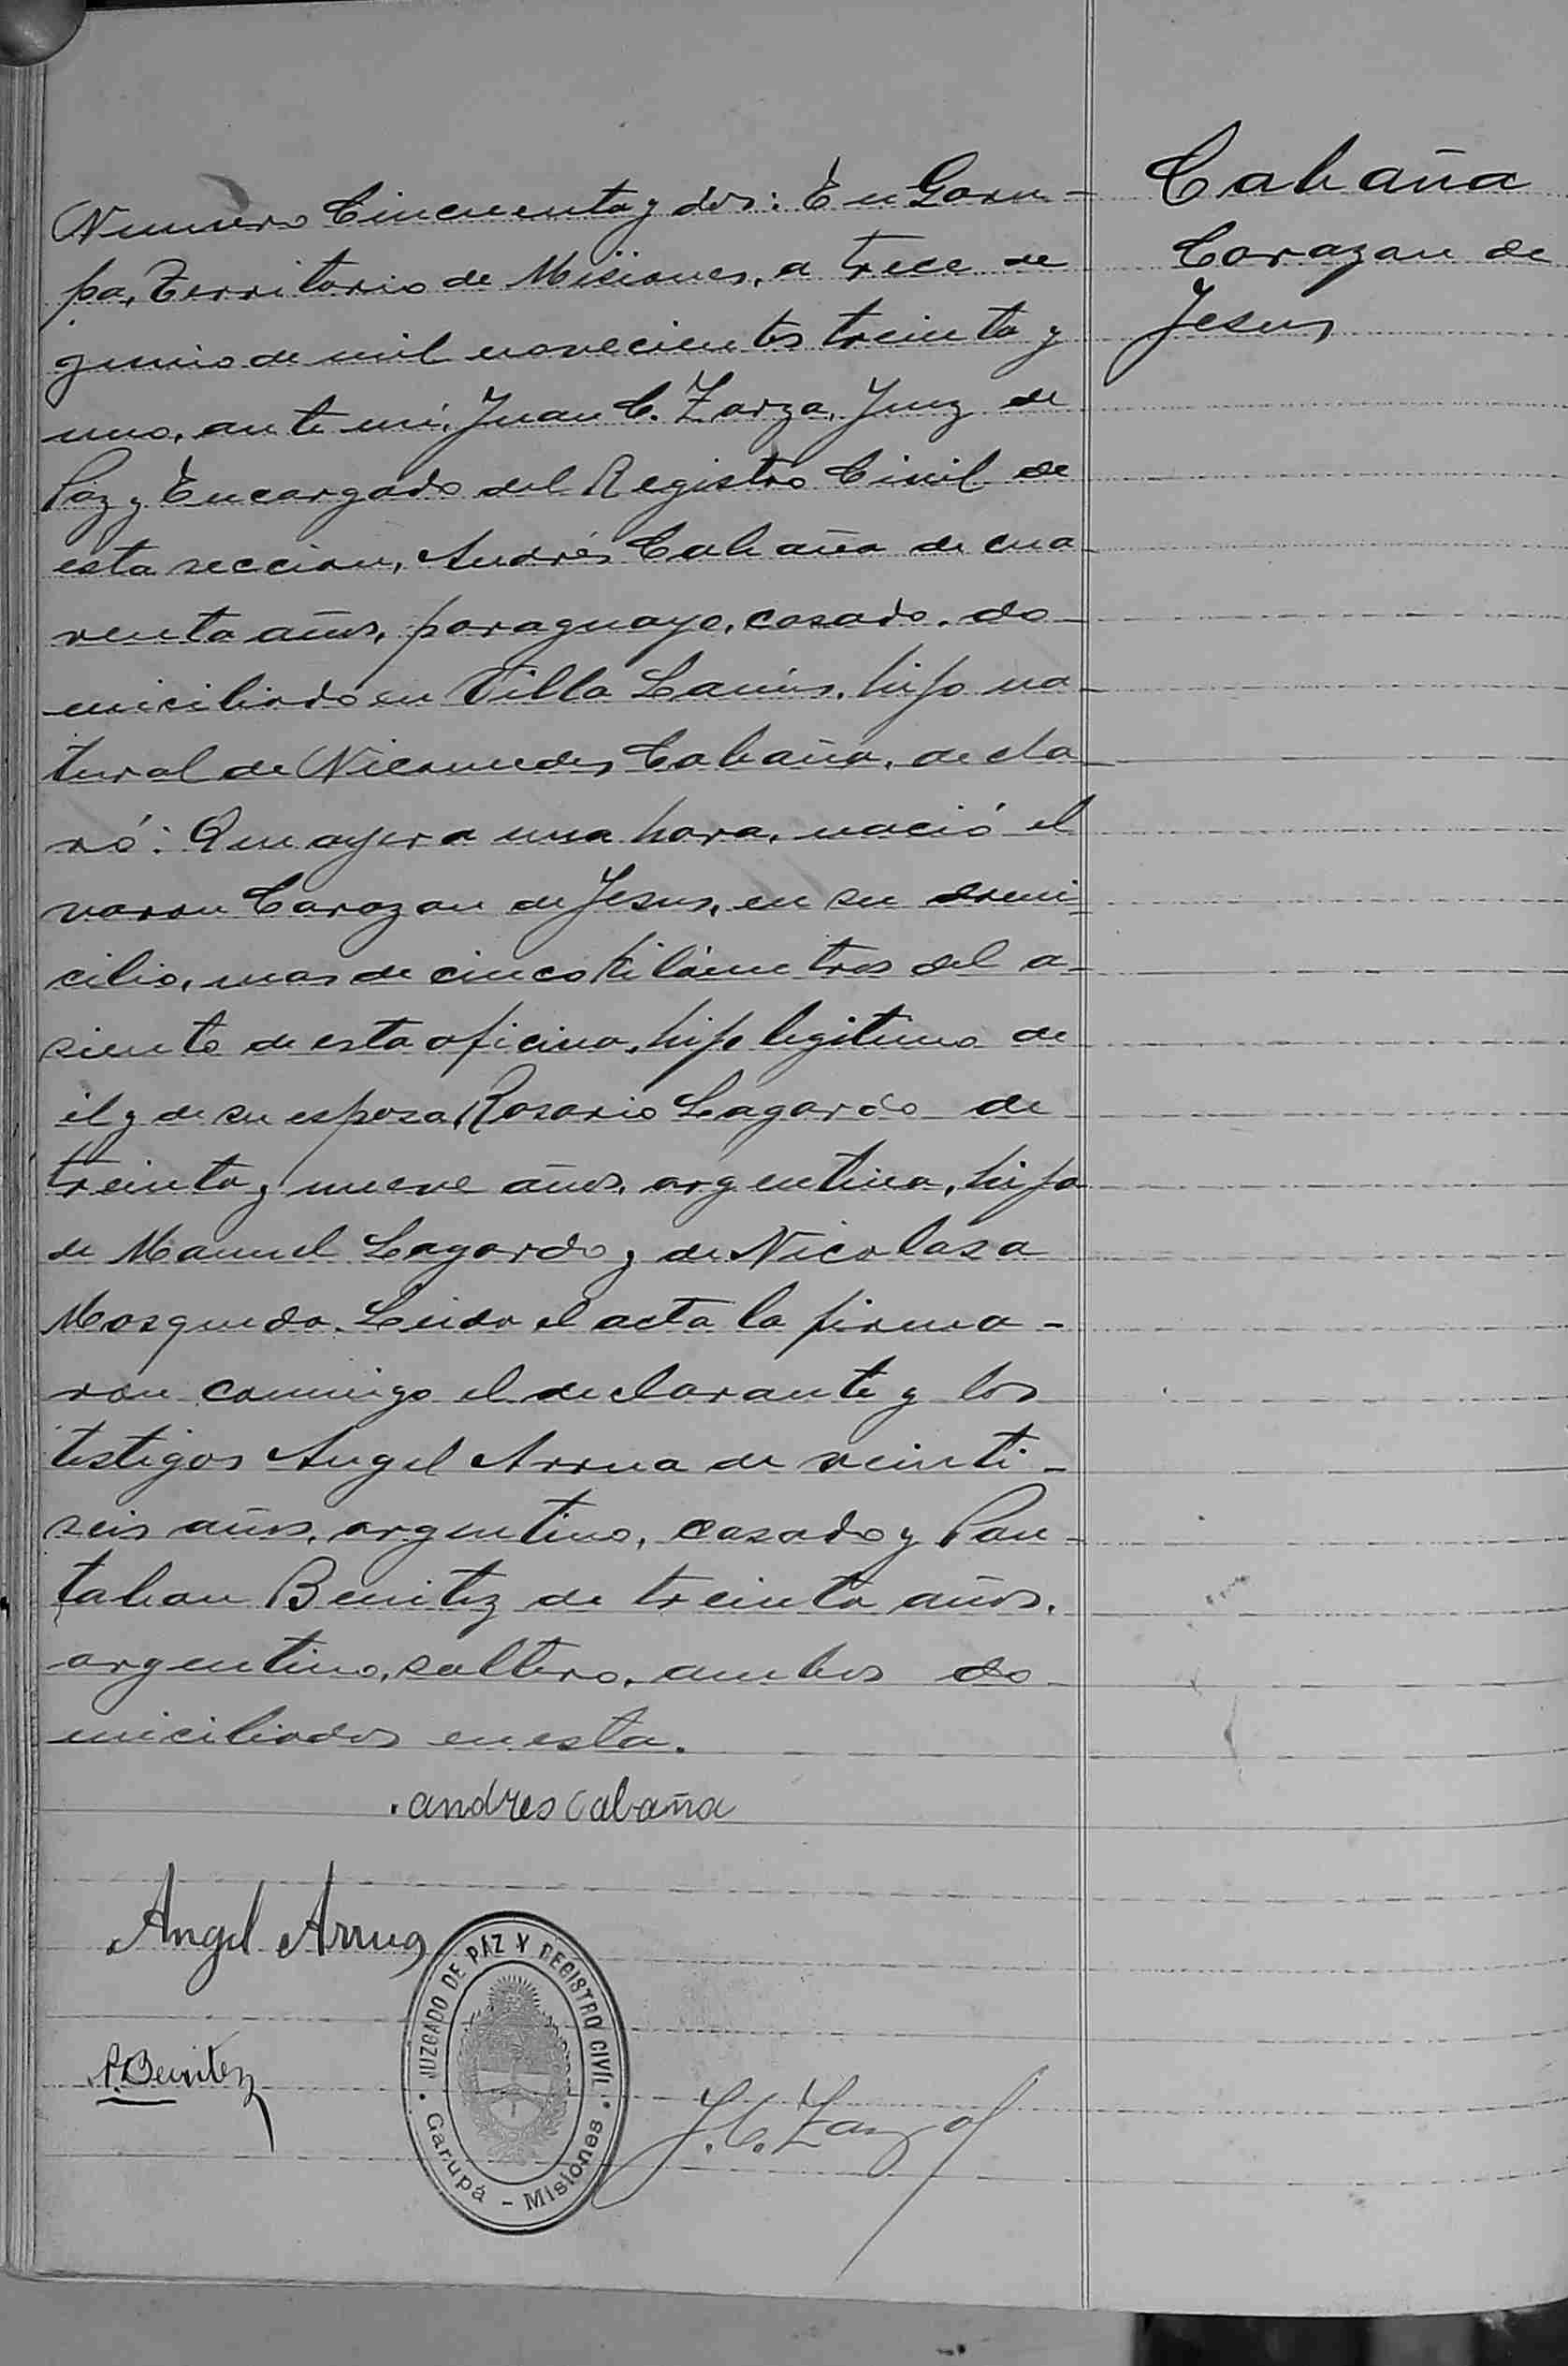 Cabaña
Corazon de
Jesus
Numero Cincuenta y dos: En Garu-
pa, Territorio de Misiones, a trece de
junio de mil novecientos treinta y
uno, ante mi, Juan C. Zarza, Juez de
Paz y Encargado del Registro Civil de
esta seccion, Andrés Cabaña de cua-
renta años, paraguayo, casado, do-
miciliado en Villa Lanús, hijo na-
tural de Nicomedes Cabaña, decla-
ró: Que ayer a una hora, nació el
varon Corazon de Jesus, en su domi-
cilio, mas de cinco kilómetros del a-
siento de esta oficina, hijo legitimo de
él y de su esposa Rosario Lagardo de
treinta y nueve años, argentina, hija
de Manuel Lagardo y de Nicolasa
Mosqueda. Leida el acta la firma-
ron conmigo el declarante y los
testigos Angel Arrua de veinti-
seis años, argentino, casado y Pan-
taleon Benitez de treinta años,
argentino, soltero, ambos do-
miciliados en esta.
andres cabaña
Angel Arrua
P. Benitez
JUZGADO DE PAZ Y REGISTRO CIVIL
Garupá - Misiones
J. C. Zarza